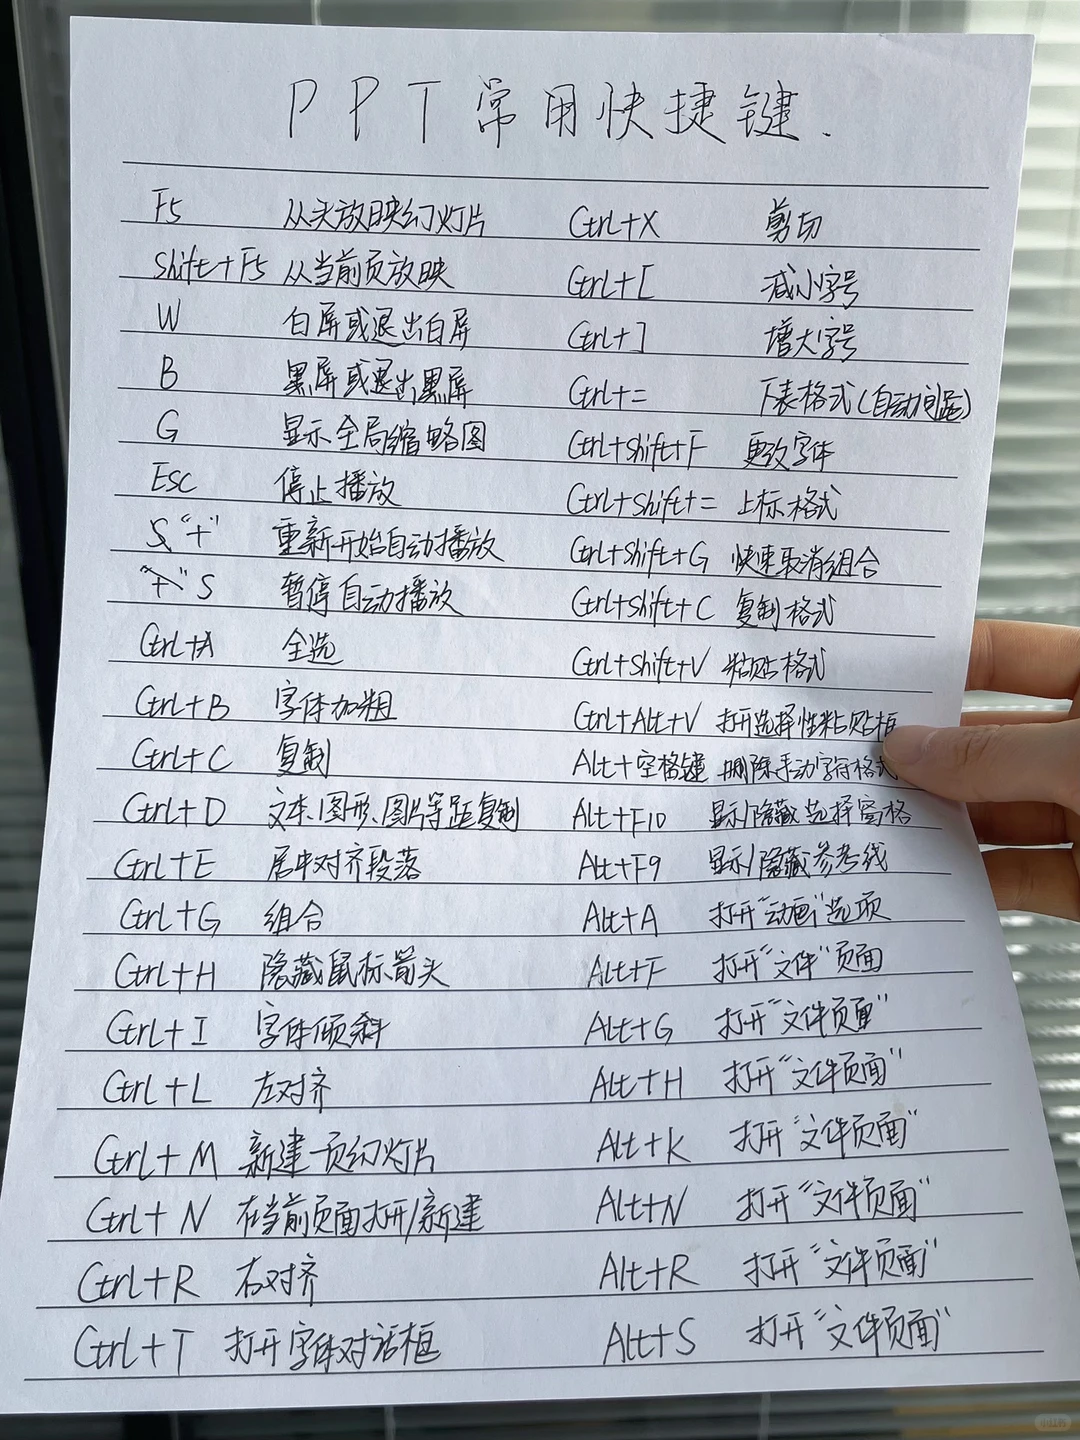 PPT常用快捷键.
F5 从头放映幻灯片 Ctrl+X 剪切
Shift+F5 从当前页放映 Ctrl+[ 减小字号
W 白屏或退出白屏 Ctrl+] 增大字号
B 黑屏或退出黑屏 Ctrl+= 下表格式(自动间距)
G 显示全局缩略图 Ctrl+Shift+F 更改字体
ESC 停止播放 Ctrl+Shift+= 上标格式
S、“+” 重新开始自动播放 Ctrl+Shift+G 快速取消组合
“+”、S 暂停自动播放 Ctrl+Shift+C 复制格式
Ctrl+A 全选 Ctrl+Shift+V 粘贴格式
Ctrl+B 字体加粗 Ctrl+Alt+V 打开选择性粘贴框
Ctrl+C 复制 Alt+空格键 删除手动字符格式
Ctrl+D 文本、图形、图片等距复制 Alt+F10 显示/隐藏选择窗格
Ctrl+E 居中对齐段落 Alt+F9 显示/隐藏参考线
Ctrl+G 组合 Alt+A 打开“动画”选项
Ctrl+H 隐藏鼠标箭头 Alt+F 打开“文件”页面
Ctrl+I 字体倾斜 Alt+G 打开“文件页面”
Ctrl+L 左对齐 Alt+H 打开“文件页面”
Ctrl+M 新建一页幻灯片 Alt+K 打开“文件页面”
Ctrl+N 在当前页面打开/新建 Alt+N 打开“文件页面”
Ctrl+R 右对齐 Alt+R 打开“文件页面”
Ctrl+T 打开字体对话框 Alt+S 打开“文件页面”
小红书